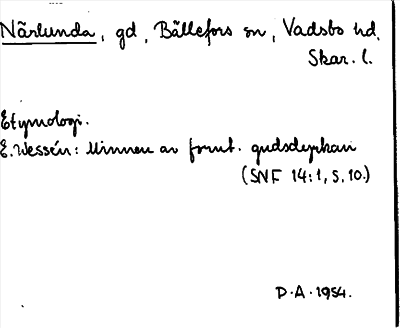 Närlunda, gd, Bällefors sn, Vadsbo hd,
Skar. l.
Etymologi.
E. Wessén: Minnen av fornt. gudsdyrkan
(SNF 14:1, S. 10.)
D.A. 1954.